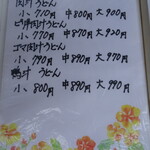 肉汁うどん
小 770円 中800円 大900円
ピリ辛肉汁うどん
小 770円 中870円 大950円
ゴマ肉汁うどん
小 790円 中890円 大970円
鴨汁 うどん
小 800円 中890円 大990円